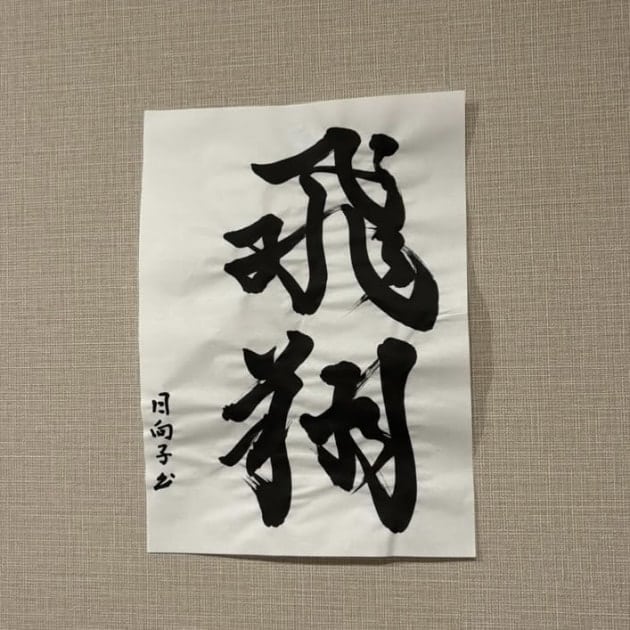 飛翔
日向子书